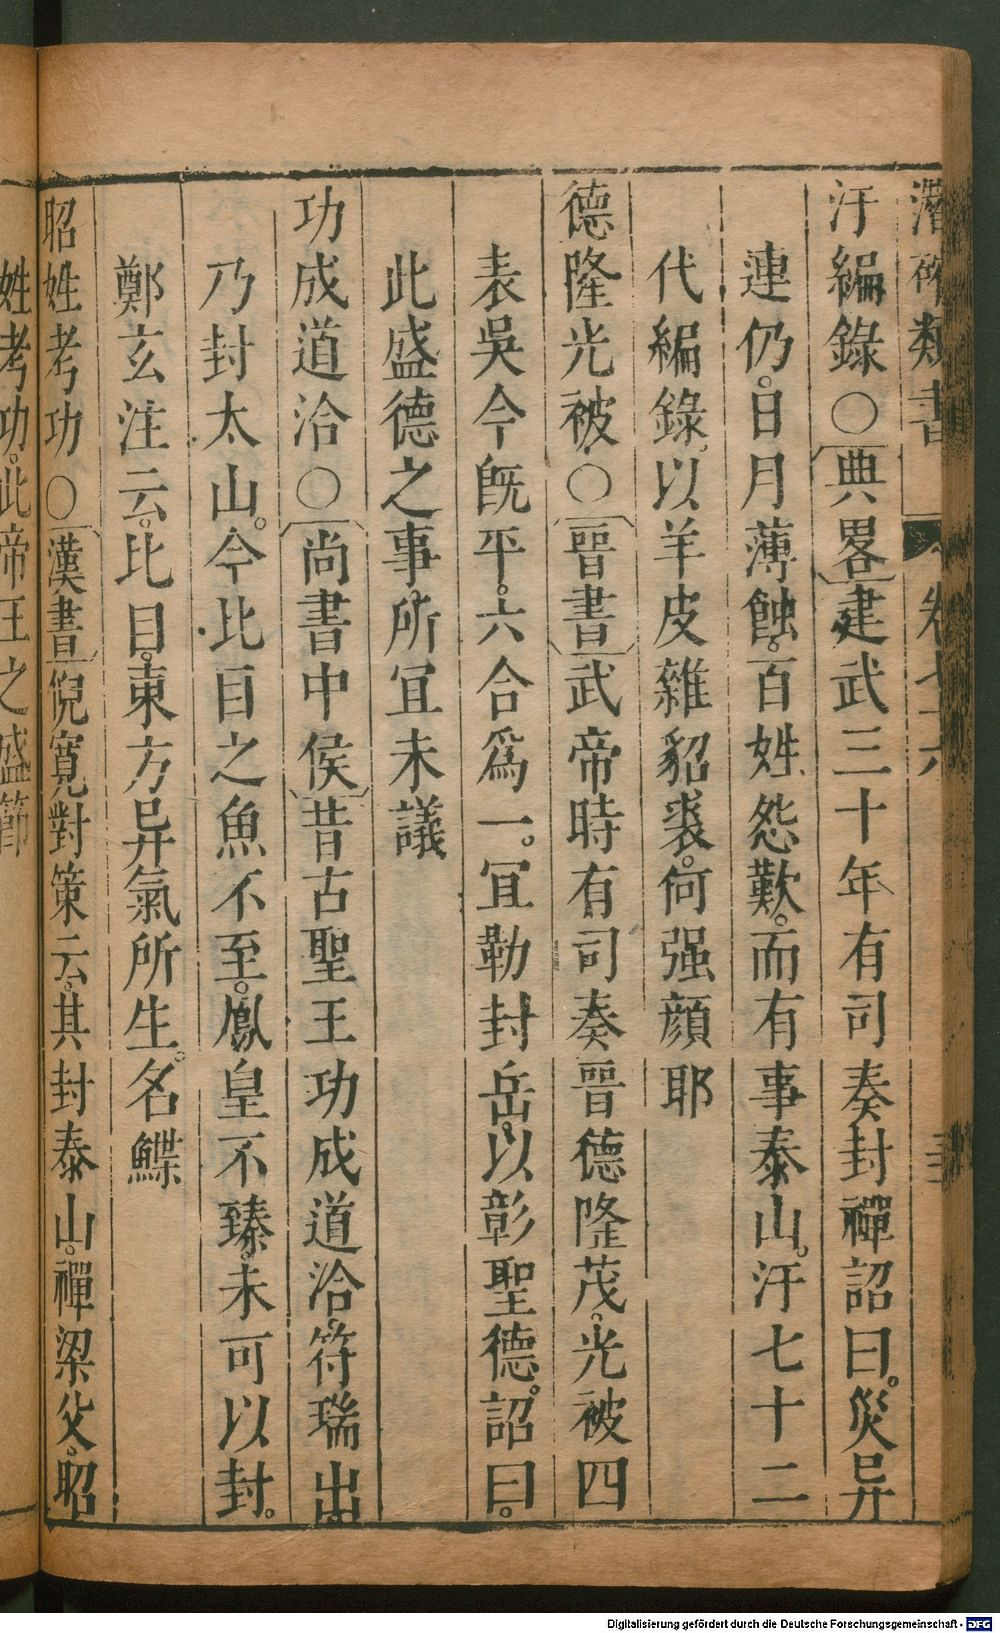 類書
汙編錄○典畧建武三十年有司奏封禪詔曰。災异
連仍。日月薄蝕。百姓怨歎。而有事泰山。汙七十二
代編錄。以羊皮雜貂裘。何强顔耶
德隆光被○晉書武帝時有司奏晉德隆茂。光被四
表吳今旣平。六合爲一。冝勒封岳。以彰聖德。詔曰。
此盛德之事。所冝未議
功成道洽○尚書中侯昔古聖王功成道洽。符瑞出
乃封太山。今比目之魚不至。鳳皇不臻。未可以封。
鄭玄注云。比目。東方异氣所生。名鰈
昭姓考功○漢書倪寬對策云。其封泰山。禪梁父。昭
姓考功。此帝王之盛節
Digitalisierung gefördert durch die Deutsche Forschungsgemeinschaft - DFG